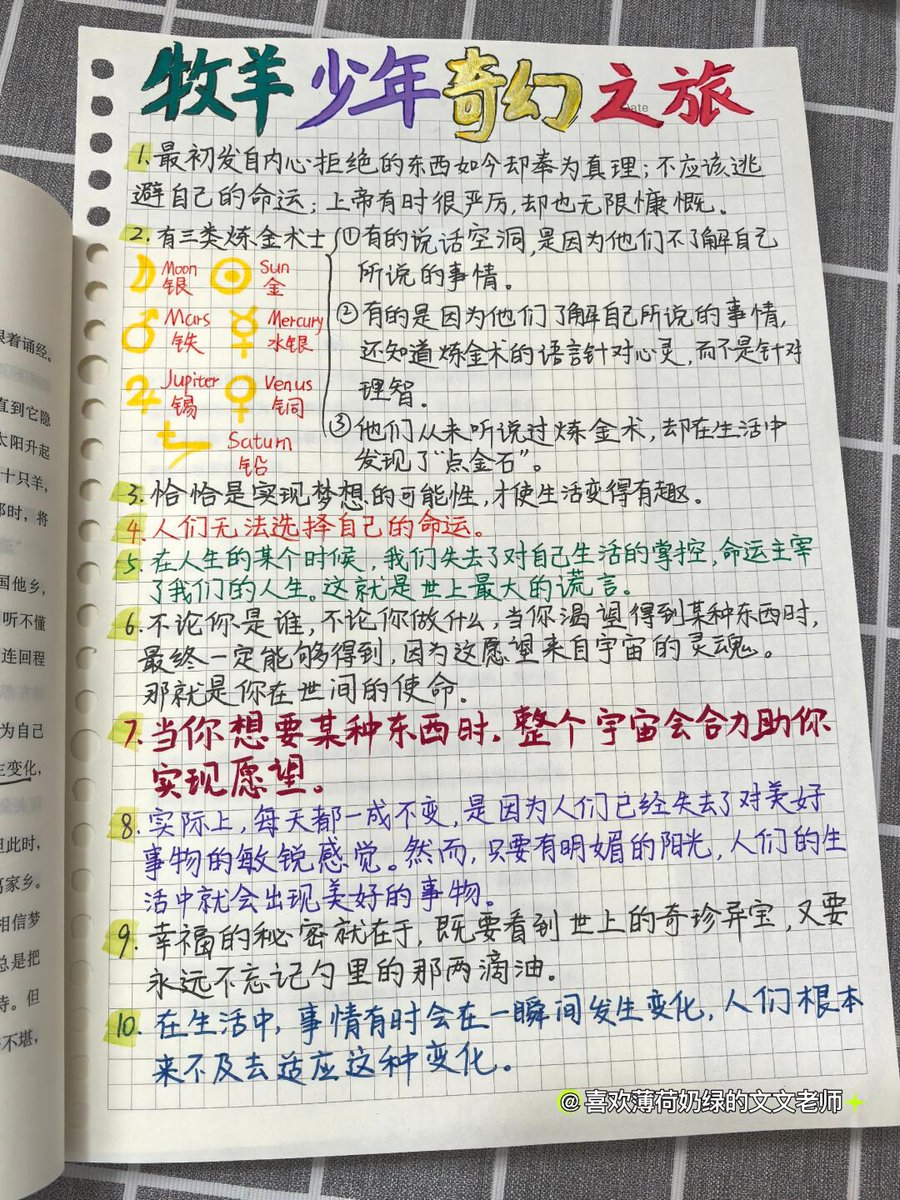 牧羊少年奇幻之旅
Date
1. 最初发自内心拒绝的东西如今却奉为真理；不应该逃
避自己的命运；上帝有时很严厉，却也无限慷慨。
2. 有三类炼金术士
①有的说话空洞，是因为他们不了解自己
所说的事情。
②有的是因为他们了解自己所说的事情，
还知道炼金术的语言针对心灵，而不是针对
理智．
③他们从来听说过炼金术，却在生活中
发现了“点金石”。
Moon
银
Sun
金
Mars
铁
Mercury
水银
Jupiter
锡
Venus
铜
Saturn
铅
3. 恰恰是实现梦想的可能性，才使生活变得有趣。
4. 人们无法选择自己的命运。
5. 在人生的某个时候，我们失去了对自己生活的掌控，命运主宰
了我们的人生。这就是世上最大的谎言。
6. 不论你是谁，不论你做什么，当你渴望得到某种东西时，
最终一定能够得到，因为这愿望来自宇宙的灵魂。
那就是你在世间的使命．
7. 当你想要某种东西时．整个宇宙会合力助你
实现愿望。
8. 实际上，每天都一成不变，是因为人们已经失去了对美好
事物的敏锐感觉。然而，只要有明媚的阳光，人们的生
活中就会出现美好的事物。
9. 幸福的秘密就在于，既要看到世上的奇珍异宝，又要
永远不忘记勺里的那两滴油．
10. 在生活中，事情有时会在一瞬间发生变化，人们根本
来不及去适应这种变化。
着诵经。
直到它隐
太阳升起
十只羊，
那时，将
国他乡，
听不懂
连回程
为自己
生变化，
但此时，
家乡。
相信梦
总是把
待。但
不堪，
@喜欢薄荷奶绿的文文老师